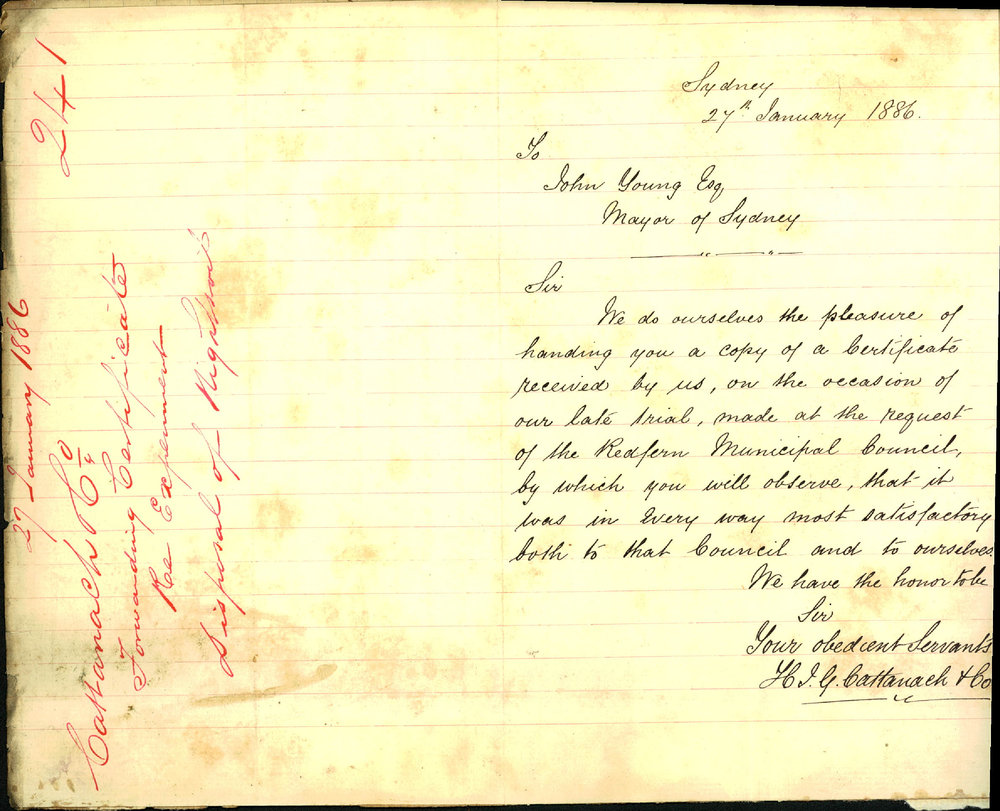 241
27 January 1886
Cattanach & Co
Forwarding Certificate
Re Experiment
Disposal of Nightsoil
Sydney
27th January 1886.
To
John Young Esq
Mayor of Sydney
Sir
We do ourselves the pleasure of
handing you a copy of a Certificate
received by us, on the occasion of
our late trial, made at the request
of the Redfern Municipal Council,
by which you will observe, that it
was in every way most satisfactory
both to that Council and to ourselves.
We have the honor to be
Sir
Your obedient Servants
H. J. G. Cattanach & Co